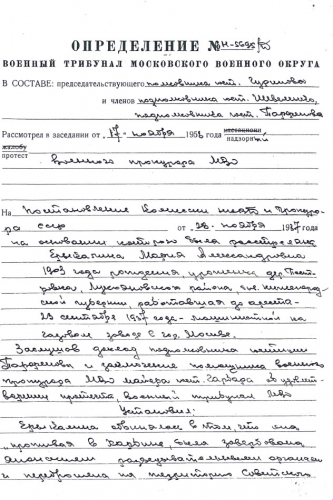 ОПРЕДЕЛЕНИЕ №
ВОЕННЫЙ ТРИБУНАЛ МОСКОВСКОГО ВОЕННОГО ОКРУГА
В СОСТАВЕ: председательствующего полковника юст.
и членов подполковника юст.
подполковника юст. Парфенова
Рассмотрел в заседании от 17 ноября 195
надзорный
жалобу
протест военного прокурора МВО
На постановление Комиссии НКВД и Прокуро-
ра СССР от ноября 1937
на основании которого была расстрелян
Мария Александровна
1903 года рождения, уроженка дер.
района
губернии, работавшая до ареста-
23 сентября 1937 года- машинисткой на
газовом заводе в гор. Москве.
Заслушав доклад подполковника юстиции
Парфенова и заключение помощника военного
прокурора МВО майора юст. об удовлет-
ворении протеста военный трибунал МВО
Установил:
обвинялась в том, что она
проживая в Харбине, была завербована
японскими разведывательными органами
и переброшена на территорию Советского